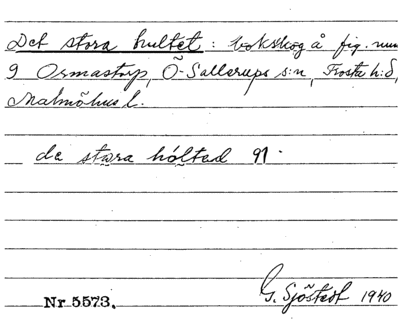 Det stora hultet: bokskog å fig. num
9 Osmastorp, Ö-Sallerups s:n, Frosta h:d,
Malmöhus l.
de stora hóltad 91.
G. Sjöstedt 1940
Nr 5573.